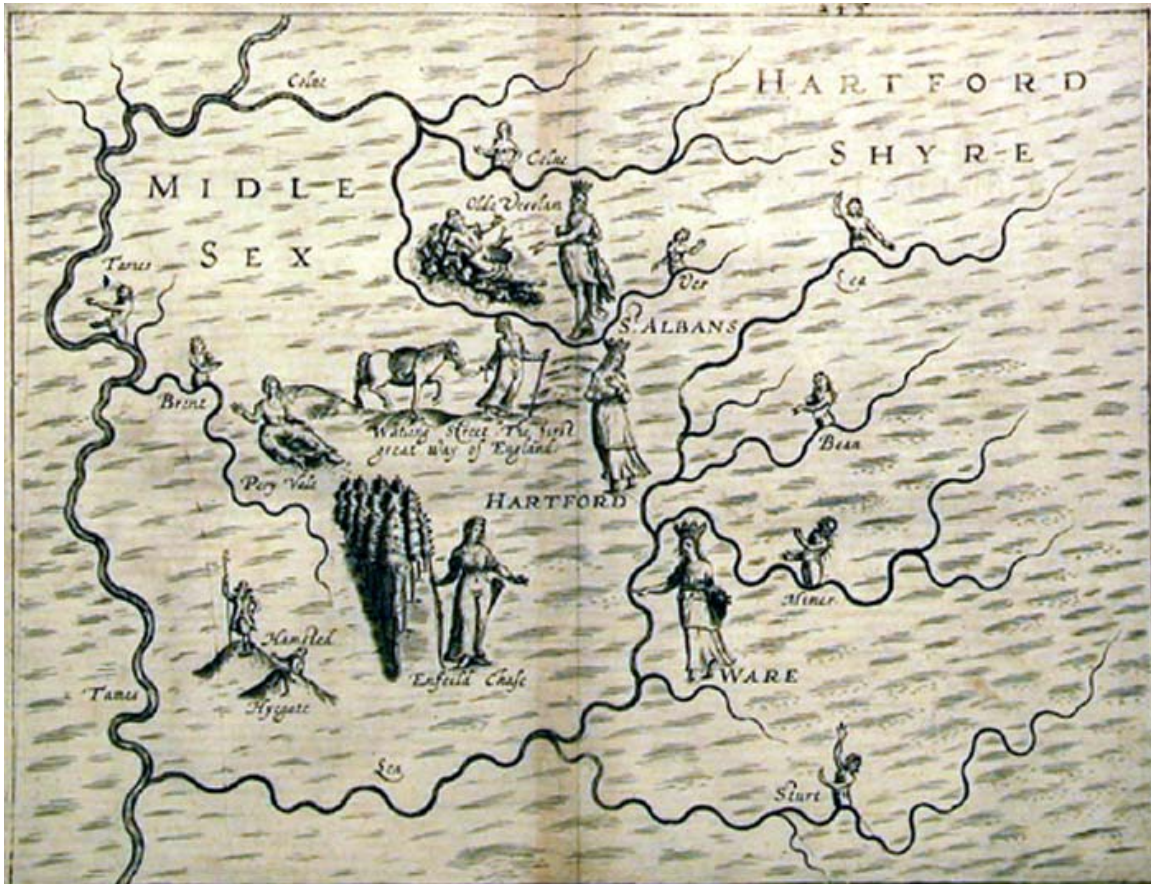 Colne
HARTFORD
SHYRE
MIDLE
SEX
Colne
Olde Verolan
Ver
Lea
Tames
St. ALBANS
Brent
Watling Street The first
great way of England.
Bean
Pery Vale
HARTFORD
Mimer
Hamsted
Hyegate
Enfeild Chase
WARE
Tames
Lea
Sturt